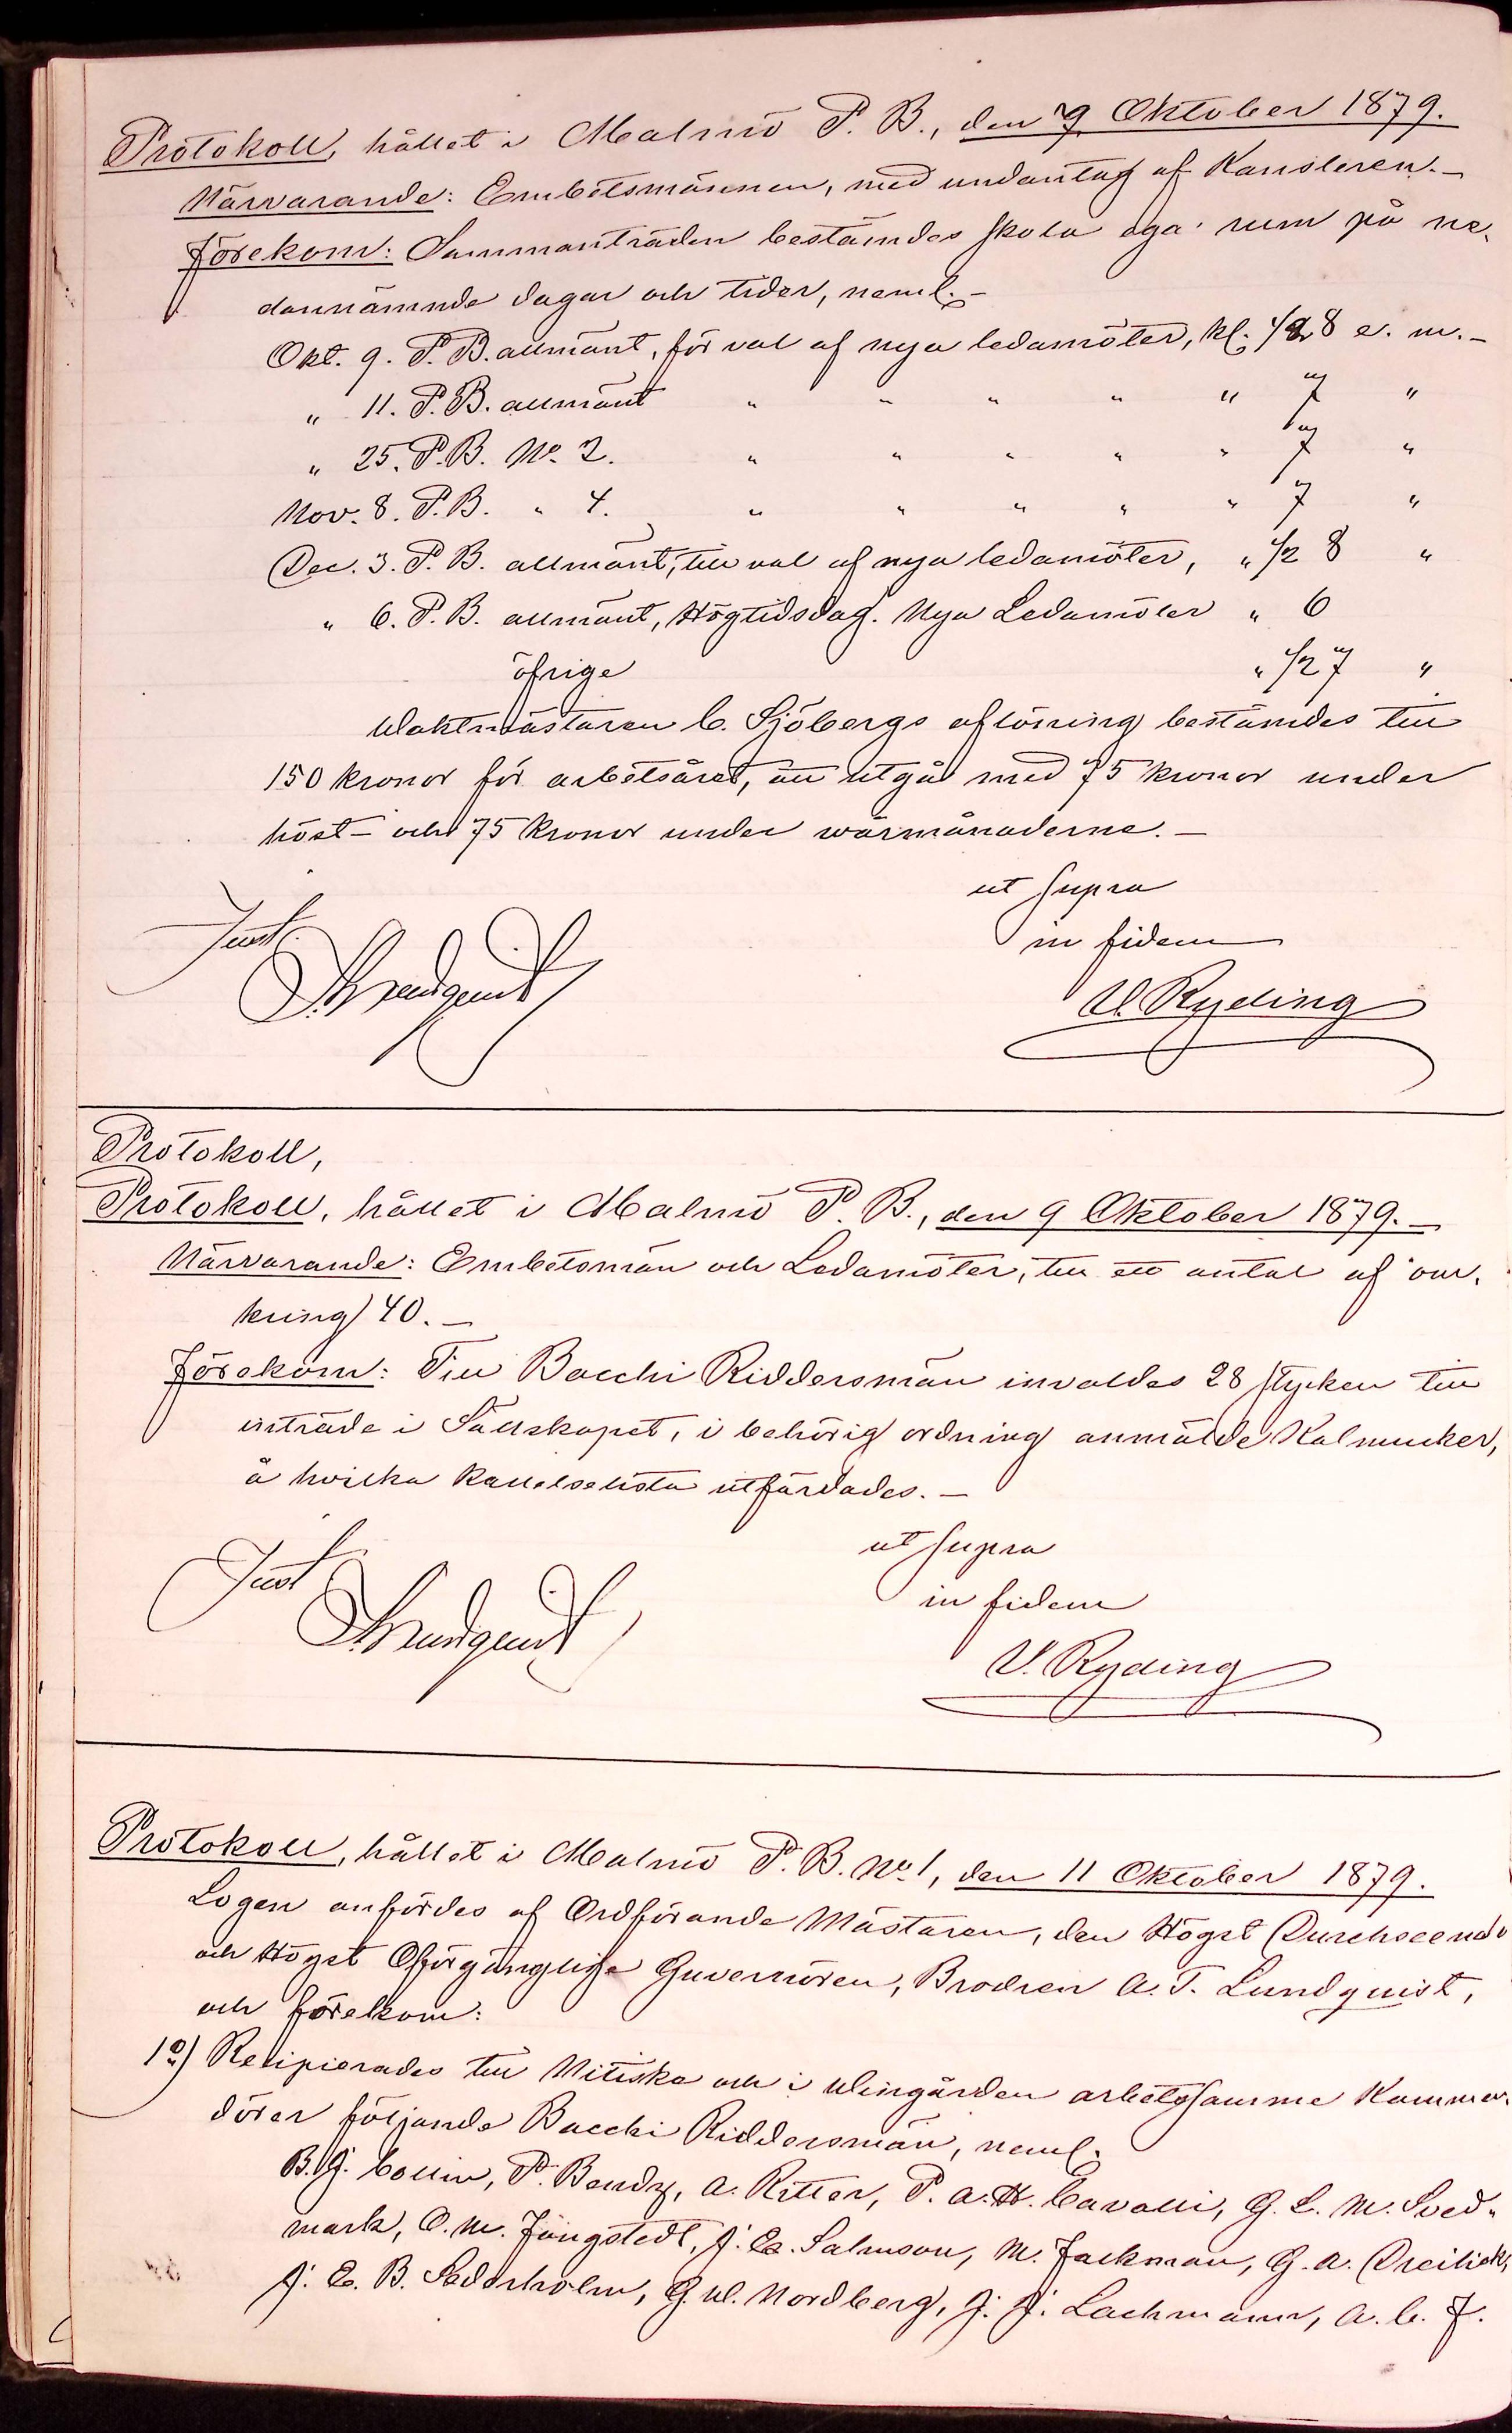 Protokoll, hållet i Malmö P. B., den 9 Oktober 1879.
Närvarande: Embetsmännen, med undantag af Kansleren.—
Förekom: Sammanträden bestämdes skola ega rum på ne-
dannämnde dagar och tider, neml.—
Okt. 9. P. B. allmänt, för val af nya ledamöter, kl. 1/2 8 e. m.—
" 11. P. B. allmänt " " " " " 7 "
" 25. P. B. No. 2. " " " " " 7 "
Nov. 8. P. B. " 4. " " " " " 7 "
Dec. 3. P. B. allmänt, till val af nya ledamöter, " 1/2 8 "
" 6. P. B. allmänt, Högtidsdag. Nya Ledamöter " 6
öfrige " 1/2 7 "
Waktmästaren C. Sjöbergs aflöning bestämdes till
150 kronor för arbetsåret, att utgå med 75 kronor under
höst- och 75 kronor under wårmånaderne.—
ut supra
Just. in fidem
A. T. Lundquist V. Ryding
Protokoll,
Protokoll, hållet i Malmö P. B., den 9 Oktober 1879.—
Närvarande: Embetsmän och Ledamöter, till ett antal af om-
kring 40.—
Förekom: Till Bacchi Riddersmän invaldes 28 stycken till
inträde i Sällskapet, i behörig ordning anmälde Kalmucker,
å hvilka kallelselista utfärdades.—
ut supra
Just in fidem
A. T. Lundquist V. Ryding
Protokoll, hållet i Malmö P. B. No 1, den 11 Oktober 1879.
Logen anfördes af Ordförande Mästaren, den Högst Durchseende
och Högst Oförgänglige Guvernören, Brodren A. T. Lundquist,
och förekom:
1o) Recipierades till Vitiska och i Wingården arbetssamme Kommen-
dörer följande Bacchi Riddersmän, neml.
B. J. Collin, P. Bendz, A. Ritter, P. A. H. Cavalli, G. L. M. Sved-
mark, O. M. Jungstedt, J. E. Salmson, M. Jackman, G. A. Dreilick,
J. E. B. Sederholm, G. W. Nordberg, J. J. Lachmann, A. C. F.